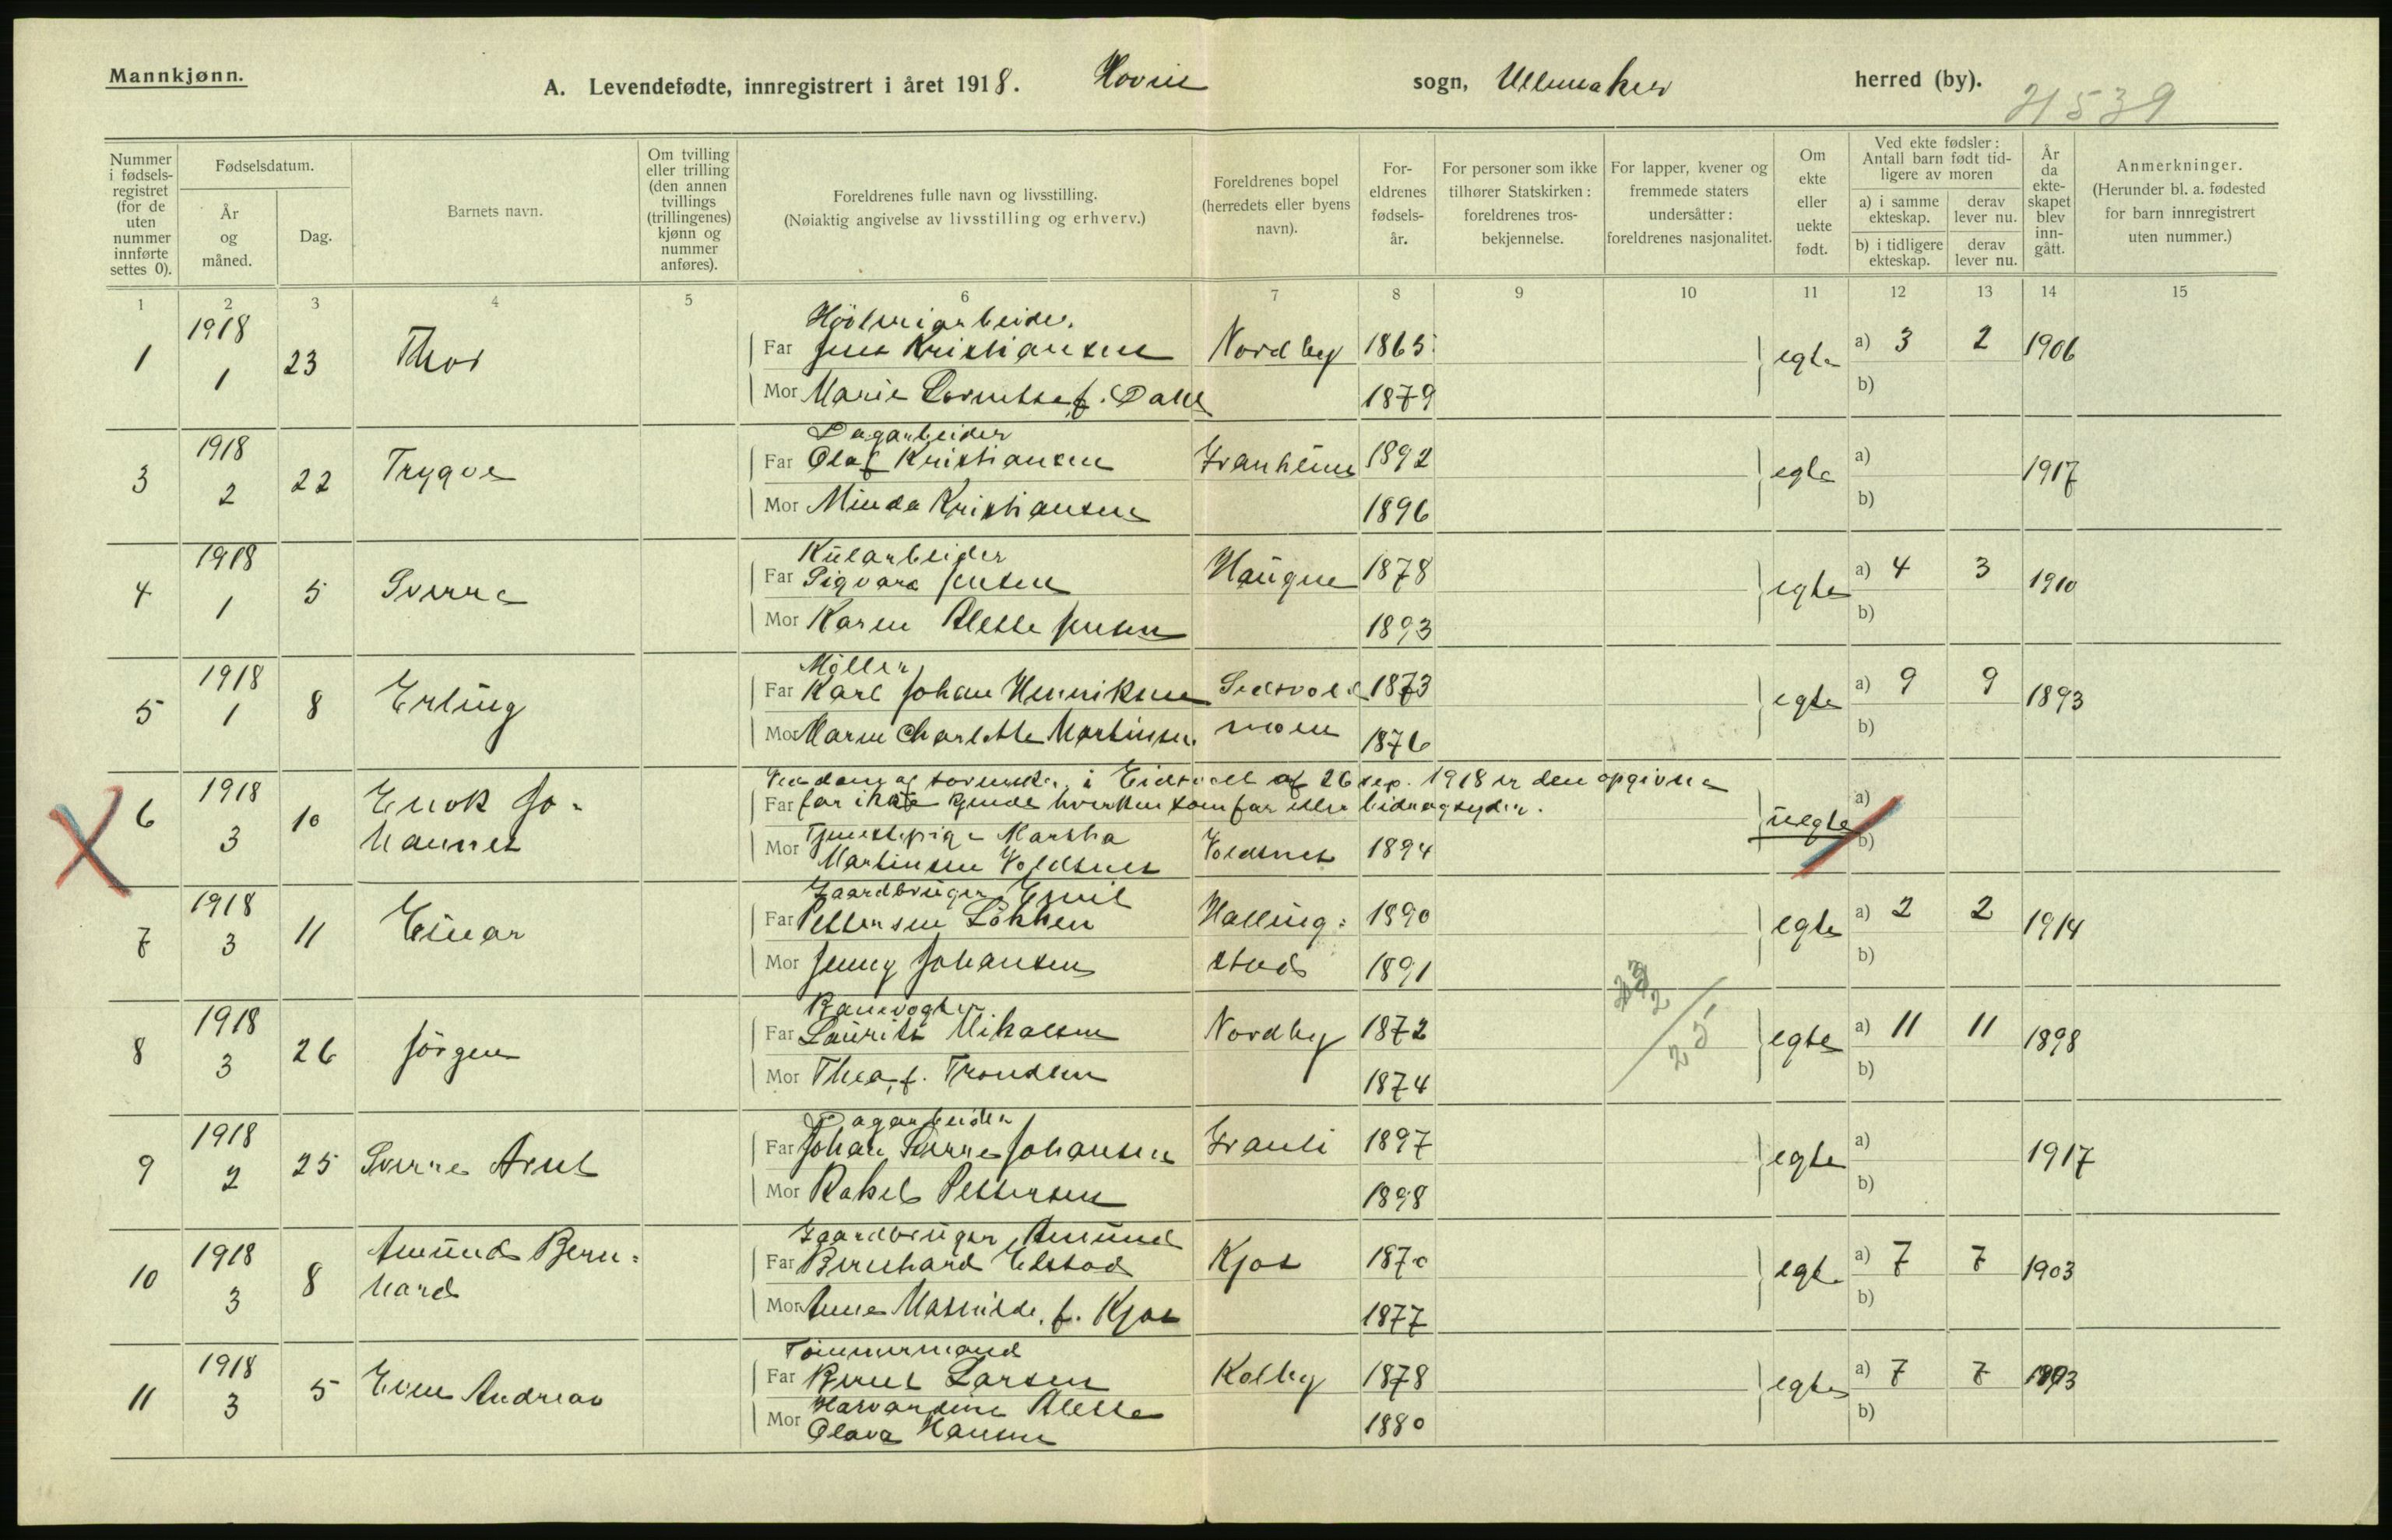 Mannkjønn.
A. Levendefødte, innregistrert i året 1918. Hovin sogn, Ullensaker herred (by).
21539
Nummer i fødsels-registret (for de uten nummer innførte settes 0).
Fødselsdatum.
År og måned.
Dag.
Barnets navn.
Om tvilling eller trilling (den annen tvillings (trillingenes) kjønn og nummer anføres).
Foreldrenes fulle navn og livsstilling.
(Nøiaktig angivelse av livsstilling og erhverv.)
Foreldrenes bopel (herredets eller byens navn).
For-eldrenes fødsels-år.
For personer som ikke tilhører Statskirken: foreldrenes tros-bekjennelse.
For lapper, kvener og fremmede staters undersåtter: foreldrenes nasjonalitet.
Om ekte eller uekte født.
Ved ekte fødsler: Antall barn født tid-ligere av moren
a) i samme ekteskap.
derav lever nu.
b) i tidligere ekteskap.
derav lever nu.
År da ekte-skapet blev inn-gått.
Anmerkninger.
(Herunder bl. a. fødested for barn innregistrert uten nummer.)
1 2 3 4 5 6 7 8 9 10 11 12 13 14 15
Høvleriarbeider.
1 1918 1 23 Thor Far Jens Kristiansen Nordby 1865 egte a) 3 2 1906
Mor Marie Lornetse f. Dahl 1879 b)
Dagarbeider
3 1918 2 22 Trygve Far Olaf Kristiansen Franheim 1892 egte a) 1917
Mor Minda Kristiansen 1896 b)
Kularbeider
4 1918 1 5 Sverre Far Sigvard Jensen Haugen 1878 egte a) 4 3 1910
Mor Karen Alette Jensen 1893 b)
Møller
5 1918 1 8 Erling Far Karl Johan Henriksen 1873 egte a) 9 9 1893
Mor Maren Charlotte Martinsen moen 1876 b)
i Eidsvoll af 26 sep. 1918 er den opgivne
6 1918 3 10 Enok Jo- Far far ikke kjendt hverken som far eller bidragsyder. uegte a)
hannes Mor Tjenestepige Martha
Martinsen Voldsnes Voldsnes 1894 b)
Gaardbruger Emil
7 1918 3 11 Einar Far Pettersen Løkken Halling- 1890 egte a) 2 2 1914
Mor Jenny Johansen stad 1891 b)
Banevogter
8 1918 3 26 Jörgen Far Laurits Mikalsen Nordby 1872 egte a) 11 11 1898
Mor Thea, f. Trondsen 1874 b)
25
Dagarbeider
9 1918 2 25 Sverre Arnt Far Johan Sverre Johansen Frauli 1897 egte a) 1917
Mor Rakel Pettersen 1898 b)
Gaardbruger Amund
10 1918 3 8 Amund Bern- Far Bernhard Elstad Kjos 1870 egte a) 7 7 1903
hard Mor Anne Mathilde, f. Kjos 1877 b)
Tömmermand
11 1918 3 5 Even Andreas Far Bernt Larsen Kolby 1878 egte a) 7 7
Mor Havardine Alette
Olava Hansen 1880 b)